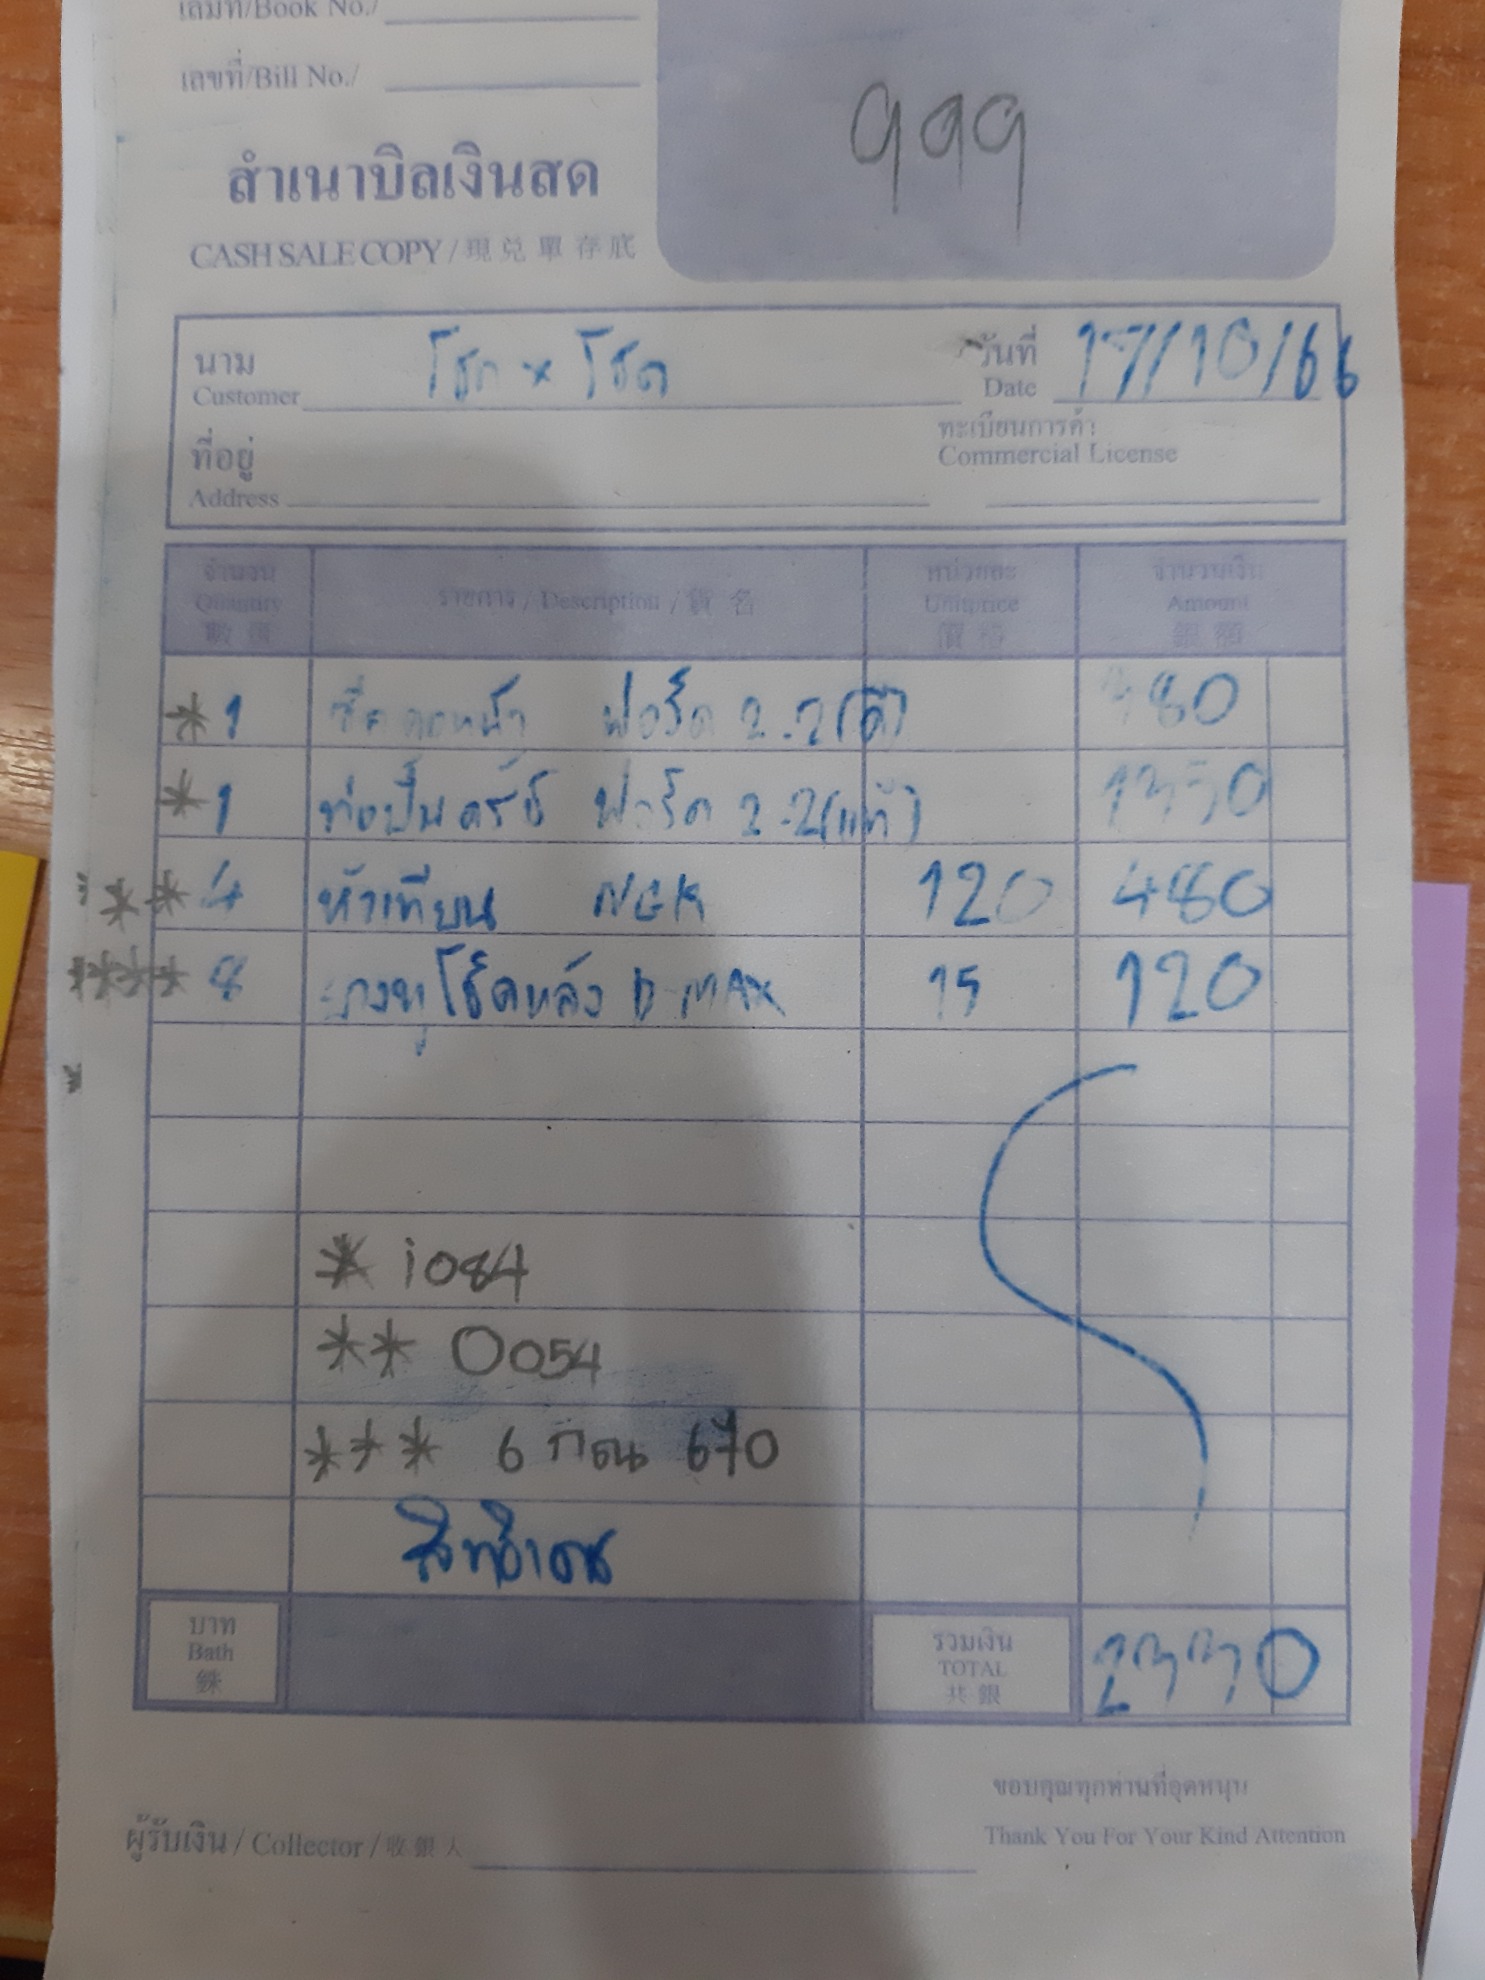 เล่มที่/Book No./
เลขที่/Bill No./
999
สำเนาบิลเงินสด
CASH SALE COPY / 現兌單存底
นาม
Customer
โชค x โชค
วันที่
Date
17/10/66
ที่อยู่
Address
ทะเบียนการค้า
Commercial License
จำนวน
Quantity
數量
รายการ / Description / 貨名
หน่วยละ
Unitprice
價格
จำนวนเงิน
Amount
銀額
*1 ฟอร์ด 2.2 380
*1 ฟอร์ด 2.2(แท้) 1350
**4 หัวเทียน NGK 120 480
***8 ยางหูโช๊คหลัง D-MAX 15 120
* 1084
** 0054
*** 6 670
สิทธิเดช
บาท
Bath
銖
รวมเงิน
TOTAL
共銀
2330
ขอบคุณทุกท่านที่อุดหนุน
ผู้รับเงิน / Collector / 收銀人
Thank You For Your Kind Attention